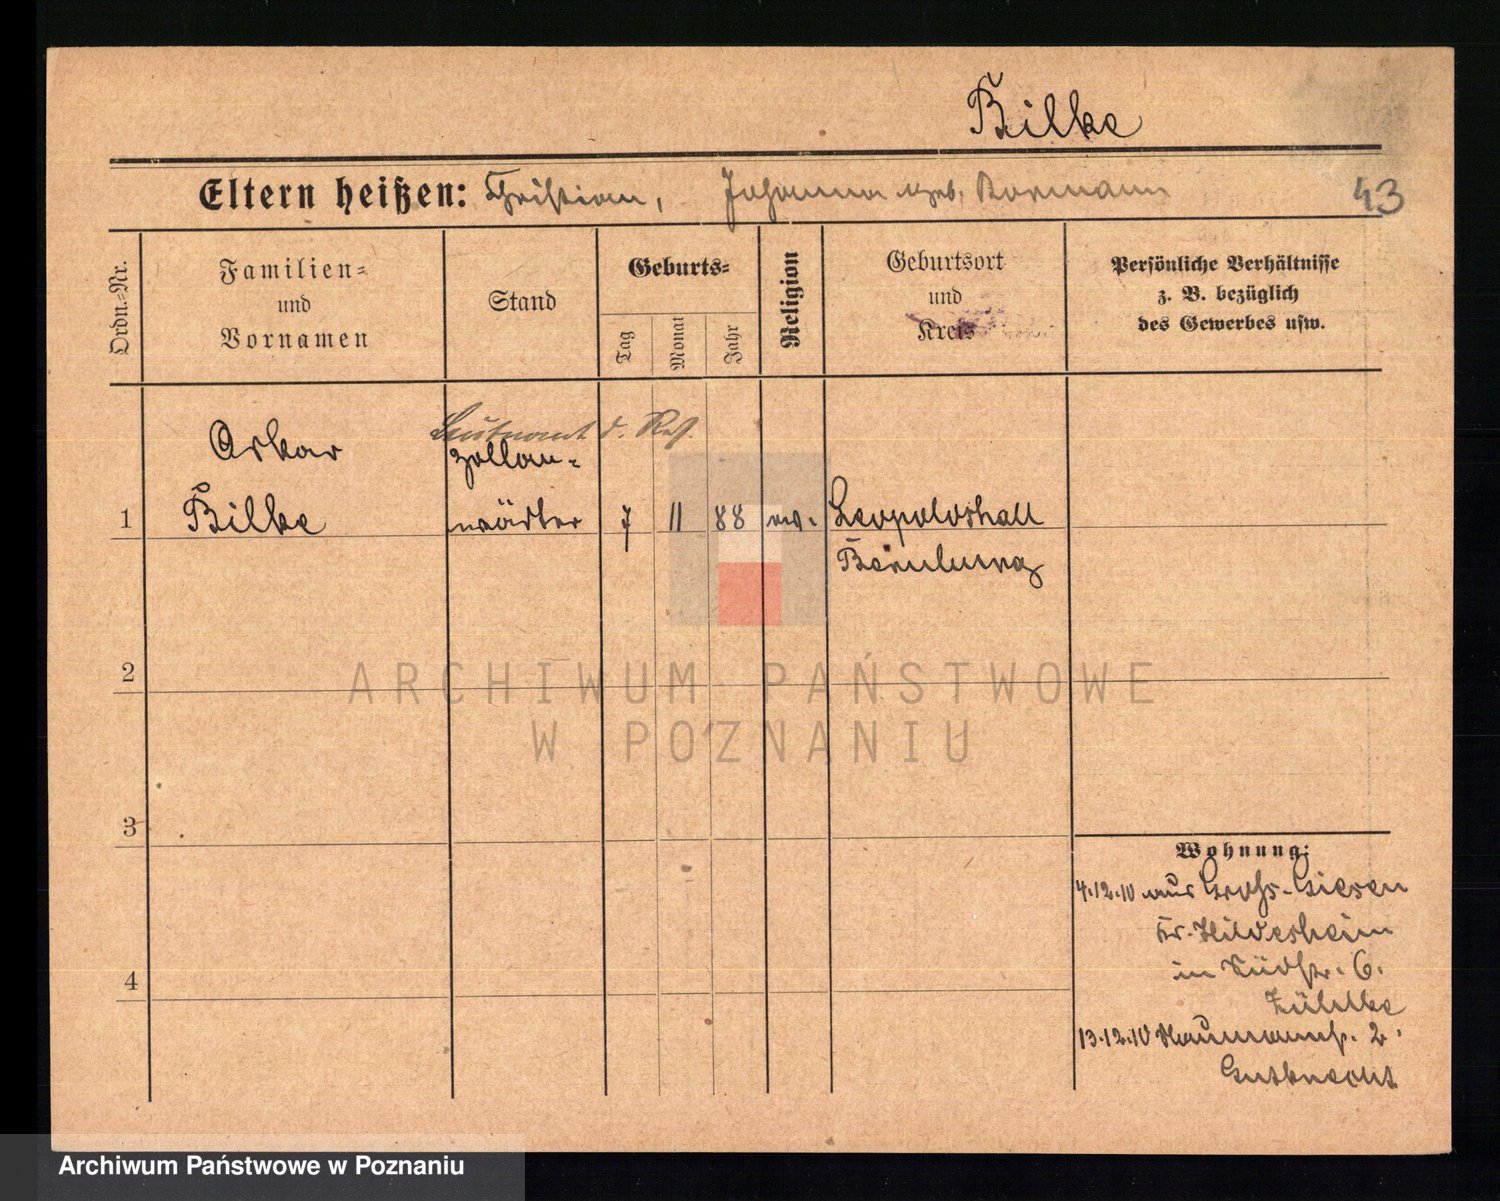 Bilke
Eltern heißen: Christian, Johanna geb. Bormann
43
Ordn.-Nr.
Familien-
und
Vornamen
Stand
Geburts-
Tag
Monat
Jahr
Religion
Geburtsort
und
Kreis
Persönliche Verhältnisse
z. B. bezüglich
des Gewerbes usw.
Leutnant d. Res.
Oskar
Zollan-
1
Bilke
wärter
7
11
88
ev.
Leopoldshall
Bernburg
ARCHIWUM PAŃSTWOWE
W POZNANIU
2
3
4
Wohnung:
4.12.10 aus Groß-Giesen
Kr. Hildesheim
in Südstr. 6.
13.12.10 Naumannstr. 2.
Gutknecht
Archiwum Państwowe w Poznaniu